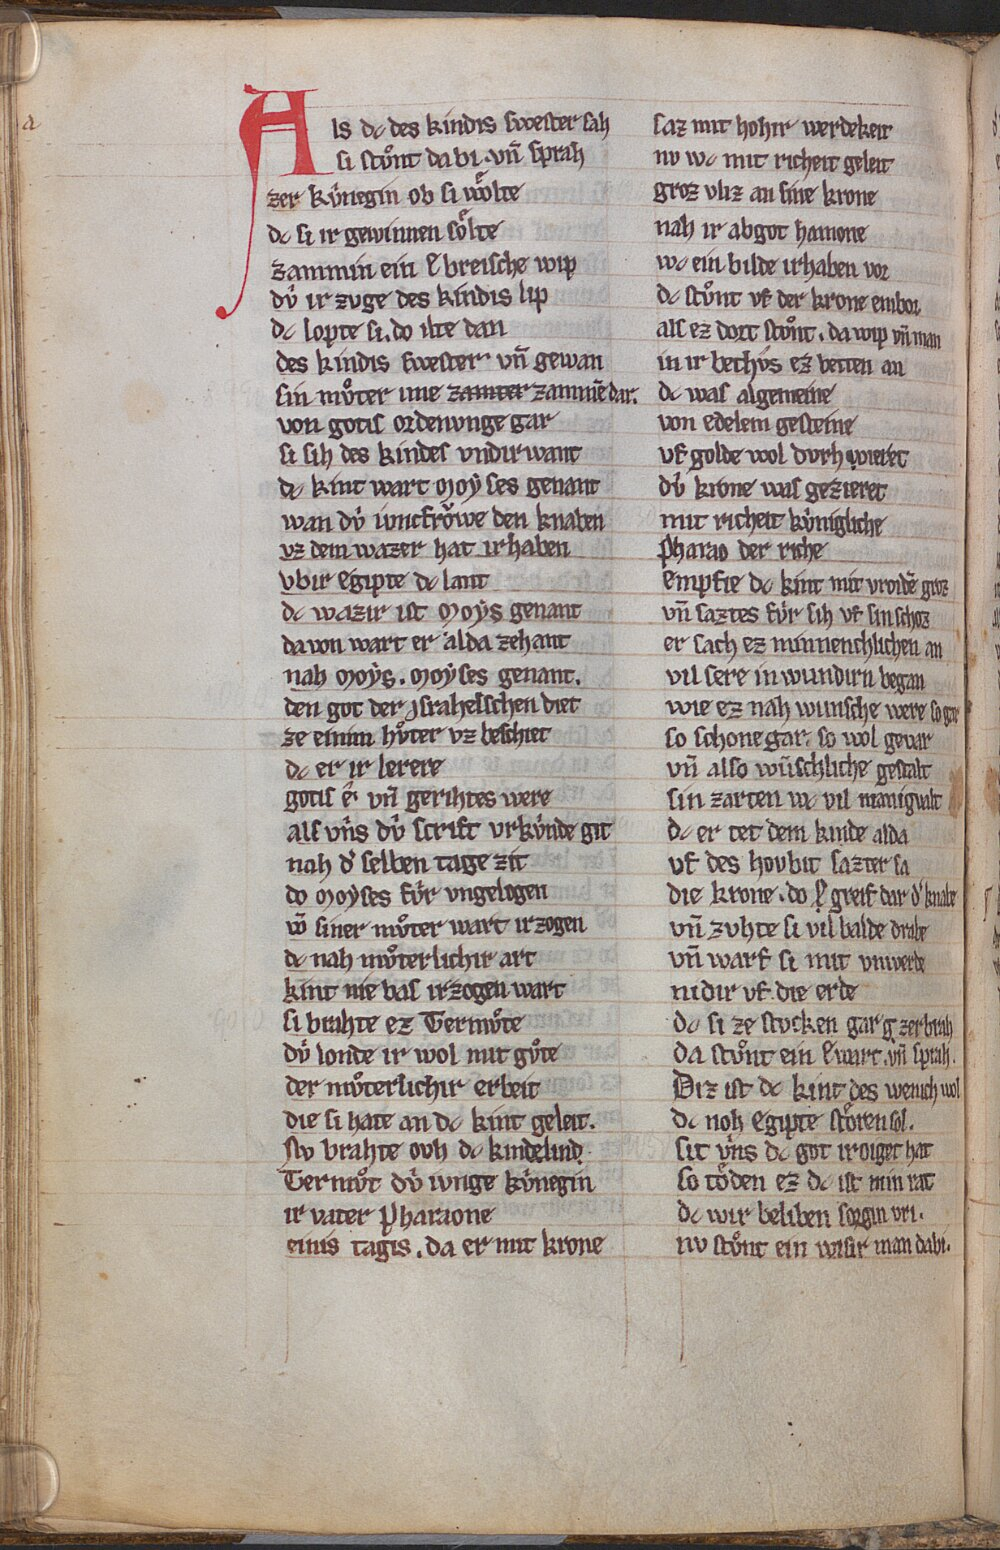 a
Als dc des kindis swester sah
si stuͦnt da bi. vn̄ sprah
zer kv́negin ob si woͤlte
dc si ir gewinnen soͤlte
zammin ein ebreische wip
dv́ ir zvge des kindis lip
dc lopte si. do ilte dan
des kindis swester vn̄ gewan
sin muͦter ime zamter zammē dar.
von gotis ordenvnge gar
si sih des kindes vndirwant
dc kint wart moyses genant
wan dv́ iuncfroͮwe den knaben
vz dem wazer hat irhaben
vbir egipte dc lant
dc wazir ist moẏs genant
da von wart er alda zehant
nah moẏs. moyses genant.
den got der israhelschen diet
ze einim huͦter vz beschiet
dc er ir lerere
gotis e. vn̄ gerihtes were
als vn̄s dv́ scrift vrkv́nde git
nah d' selben tage zit
do moyses fv́r vngelogen
vō siner muͦter wart irzogen
dc nah muͦterlichir art
kint nie bas irzogen wart
si brahte ez Termuͦte
dv́ londe ir wol mit guͦte
der muͦterlichir erbeit
die si hate an dc kint geleit.
Nv brahte ovh dc kindelind
Termuͦt dv́ ivnge kv́negin
ir vater Pharaone
einis tagis. da er mit krone
saz mit hohir werdekeit
nv wc mit richeit geleit
groz vliz an sine krone
nah ir abgot hamone
wc ein bilde irhaben vor
dc stuͦnt vf der krone embor
als ez dort stuͦnt. da wip vn̄ man
in ir bethvs ez betten an
dc was algemeine
von edelem gesteine
vf golde wol dvrhwieret
dv́ krone was gezieret
mit richeit kv́nigliche
Pharao der riche
empfie dc kint mit vroidē groz
vn̄ saztes fv́r sih vf sin schoz
er sach ez minnenchlichen an
vil sere in wundirn began
wie ez nah wunsche were so gar
so schone gar. so wol gevar
vn̄ also wūschliche gestalt
sin zarten wc vil manigvalt
dc er tet dem kinde alda
vf des hovbit sazter sa
die krone. do greif dar d' knabe
vn̄ zvhte si vil balde drabe
vn̄ warf si mit vnwerde
nidir vf die erde
dc si ze stvcken gar zerbrah
da stuͦnt ein ewart. vn̄ sprah.
Diz ist dc kint des wenich wol
dc noh egipte stoͤren sol.
sit v́ns dc got iroiget hat
so toͤden ez dc ist min rat
dc wir beliben sorgin vri.
nv stuͦnt ein wisir man dabi.